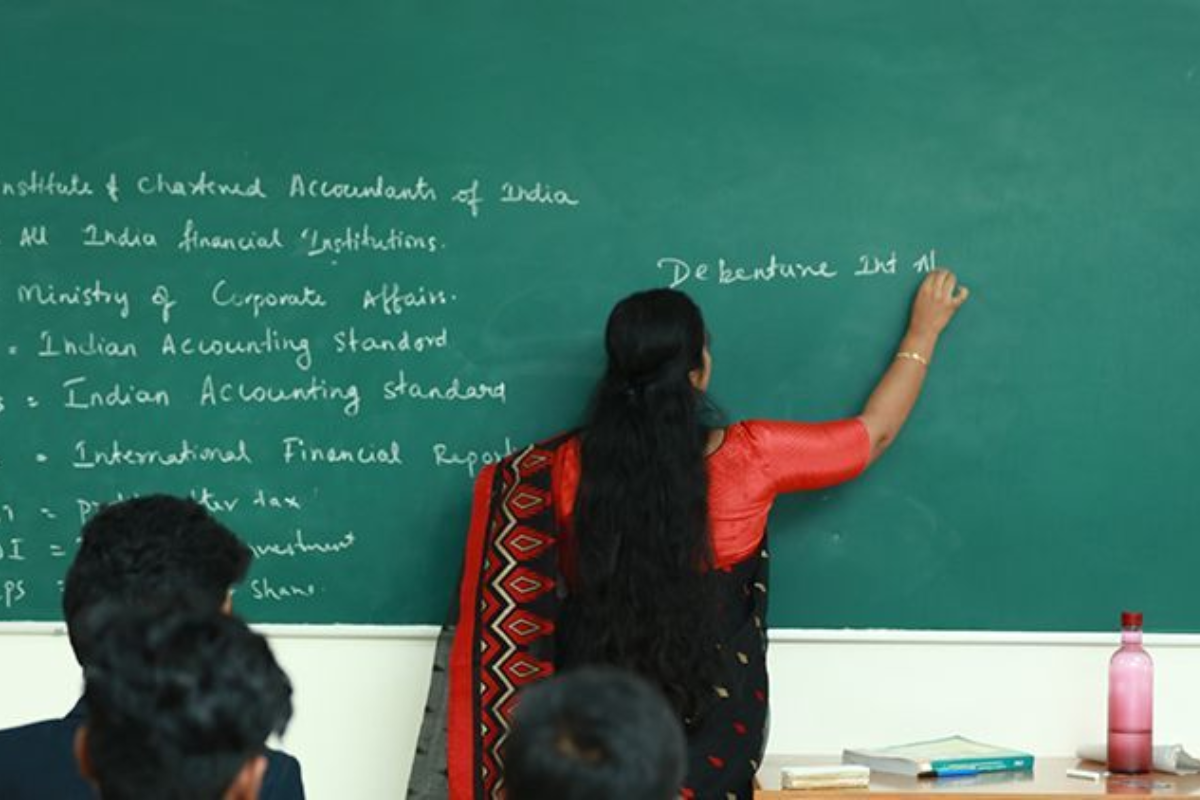 nstitute of Chartered Accountants of India
All India financial Institutions.
Ministry of Corporate Affairs.
= Indian Accounting Standard
s = Indian Accounting standard
= International Financial Report
= tax
I =
ps = share.
Debenture Int